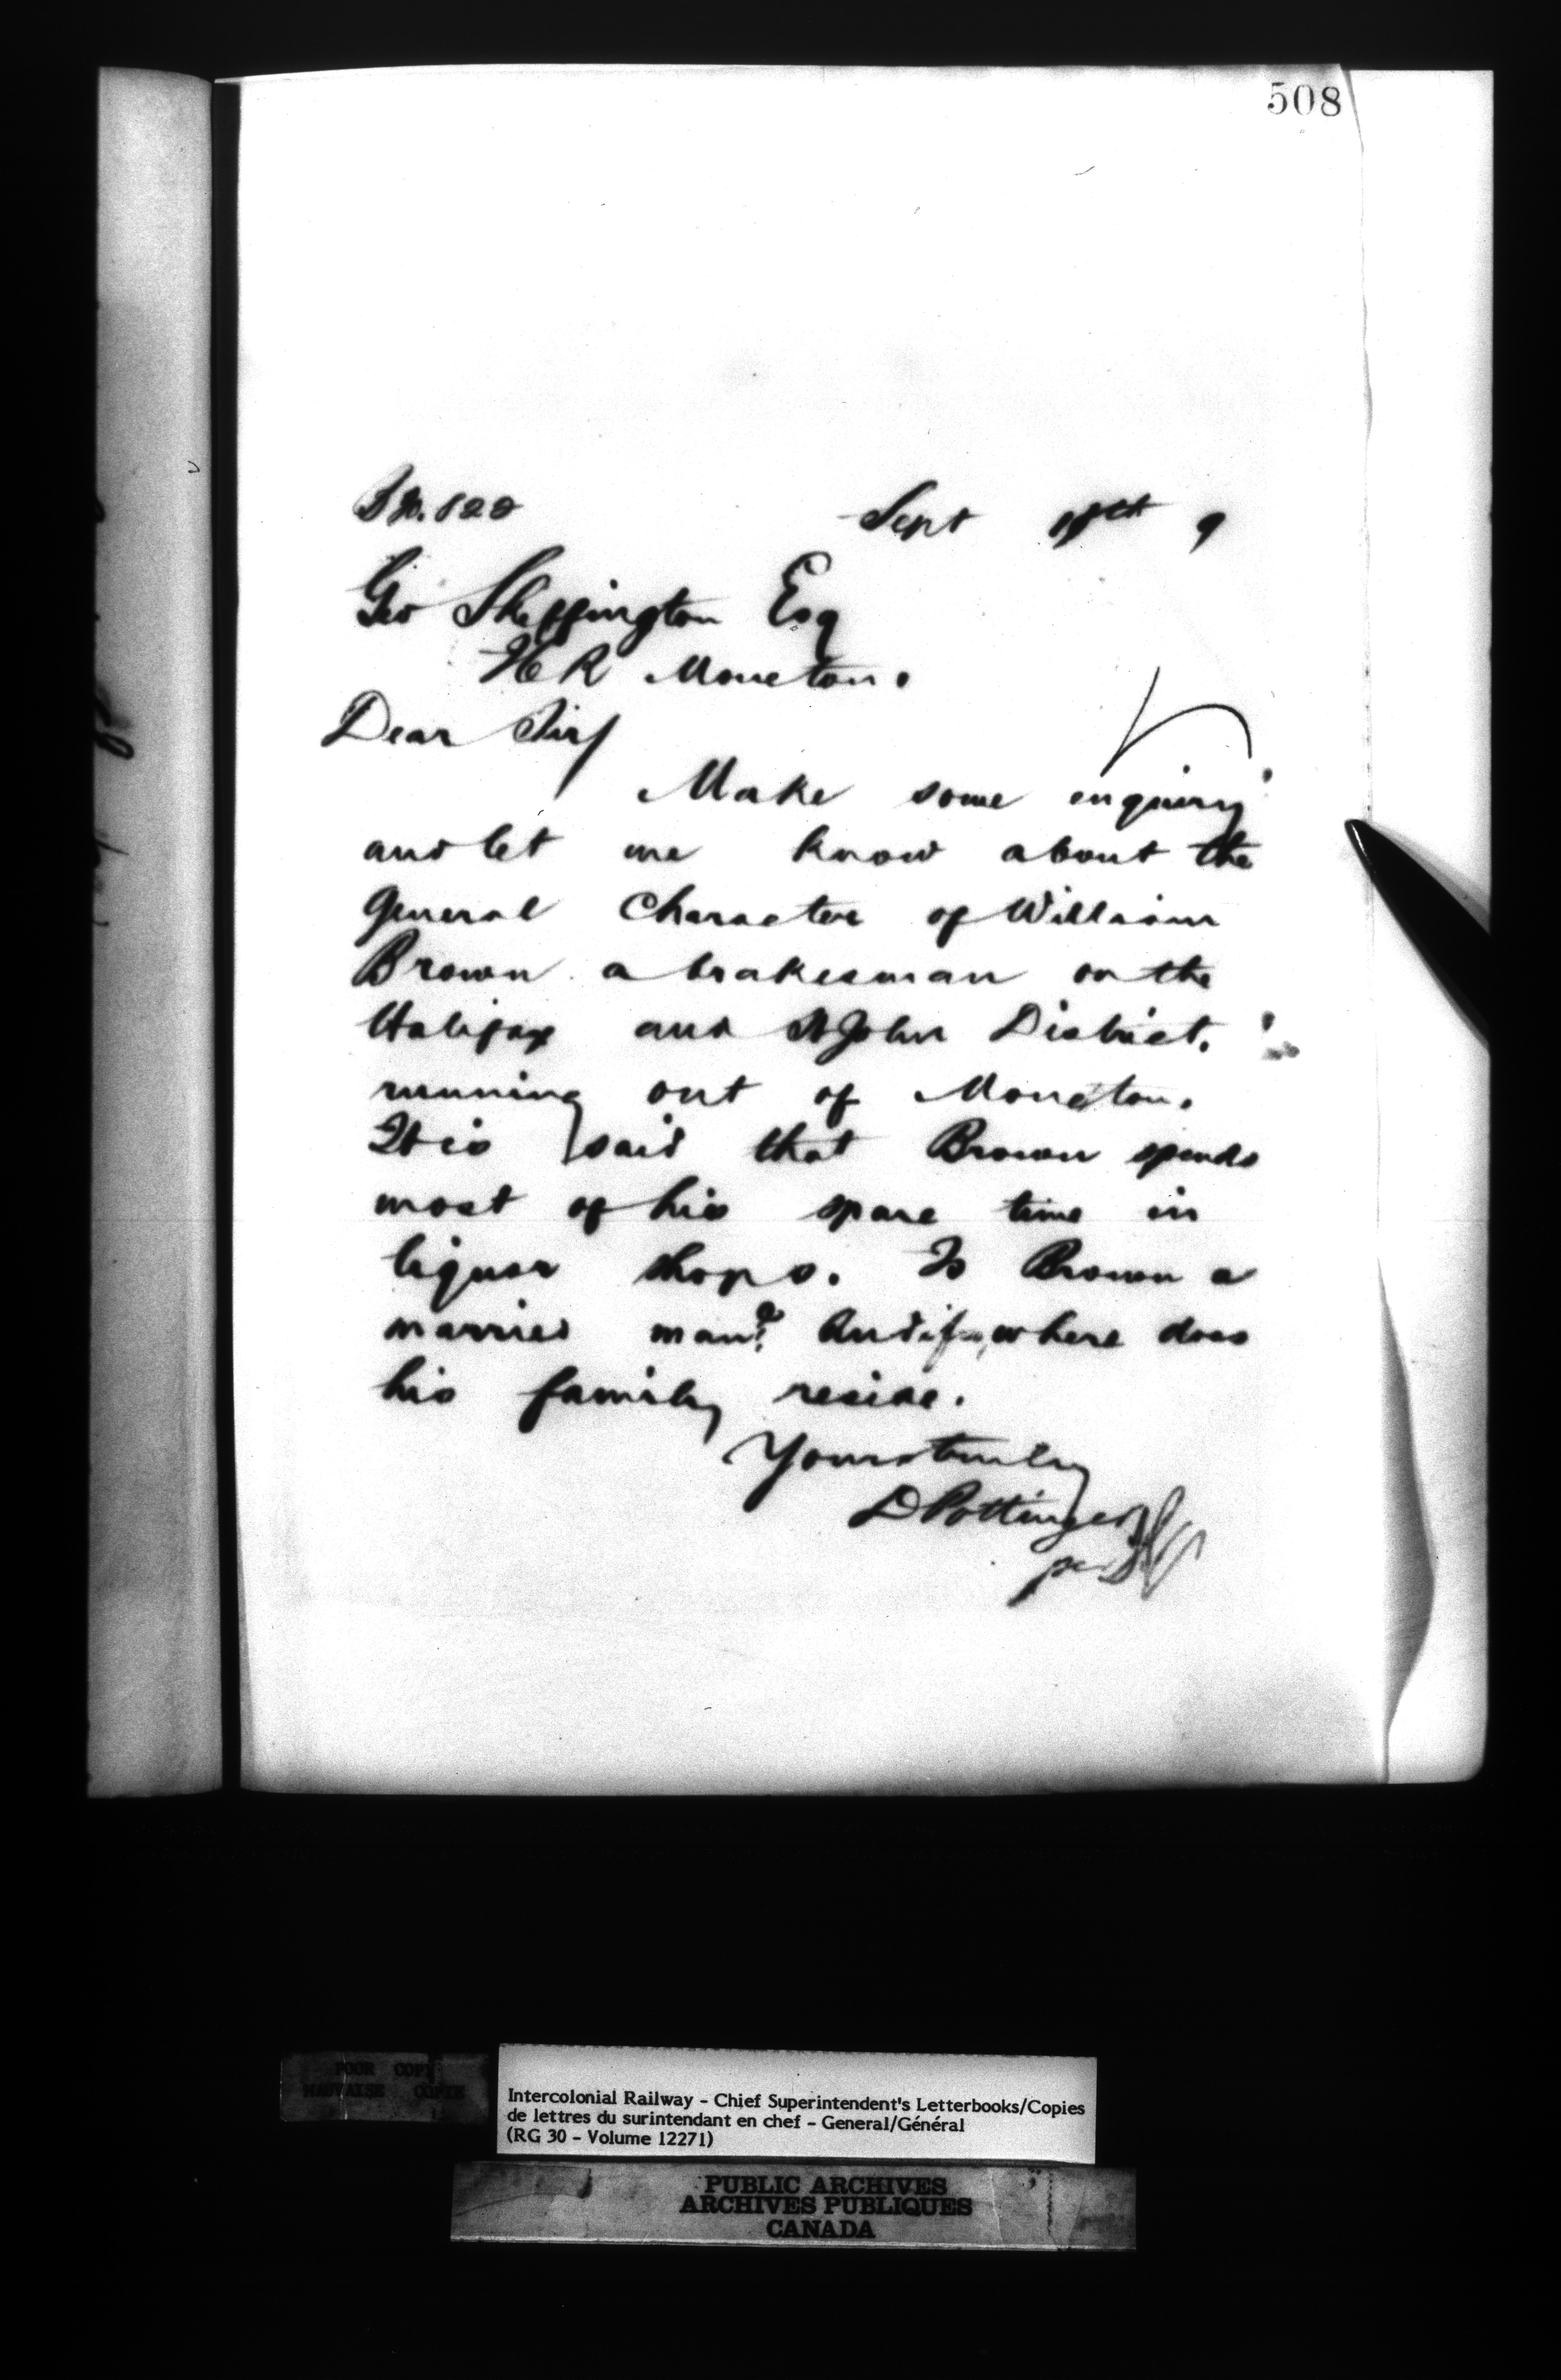 508
Sept 9
Geo Skeffington Esq
ICR Moncton.
Dear Sir/
Make some enquiry
and let me know about the
General Character of William
Brown a brakesman on the
Halifax and St John District.
running out of Moncton.
It is said that Brown spends
most of his spare time in
liquor shops. Is Brown a
married man? And if so, where does
his family reside.
Yours truly
D Pottinger
per
POOR COPY
MAUVAISE COPIE
Intercolonial Railway - Chief Superintendent's Letterbooks/Copies
de lettres du surintendant en chef - General/Général
(RG 30 - Volume 12271)
PUBLIC ARCHIVES
ARCHIVES PUBLIQUES
CANADA